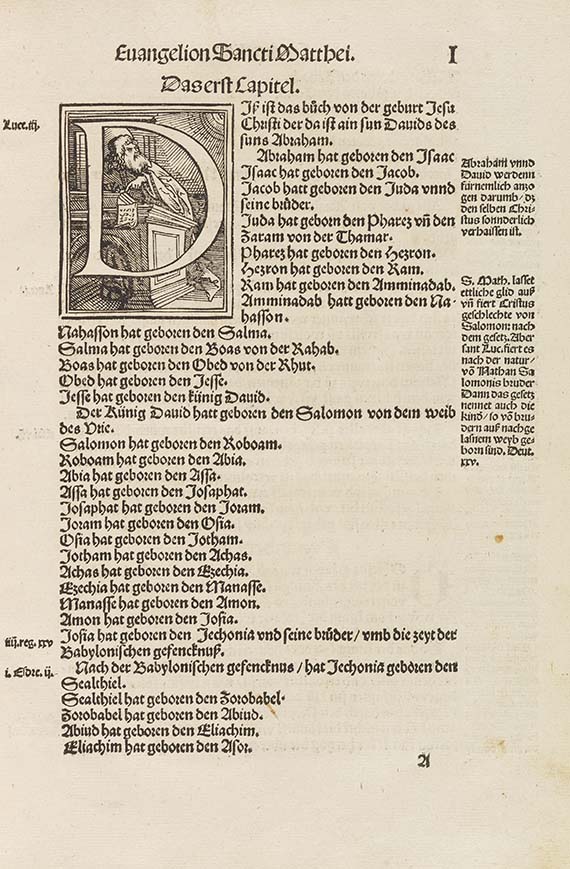 Euangelion Sancti Matthei.
I
Das erst Capitel.
Luce. iij.
DJß ist das bůch von der geburt Jesu
Christi der da ist ain sun Dauids des
suns Abraham.
Abraham hat geboren den Isaac
Isaac hat geboren den Jacob.
Jacob hatt geboren den Juda vnnd
seine brůder.
Juda hat geborn den Pharez vñ den
Zaram von der Thamar.
Pharez hat geboren den Hezron.
Hezron hat geboren den Ram.
Ram hat geboren den Amminadab.
Amminadab hatt geboren den Na-
hasson.
Nahasson hat geboren den Salma.
Salma hat geboren den Boas von der Rahab.
Boas hat geboren den Obed von der Rhut.
Obed hat geboren den Jesse.
Jesse hat geboren den künig Dauid.
Der Künig Dauid hatt geboren den Salomon von dem weib
des Vrie.
Salomon hat geboren den Roboam.
Roboam hat geboren den Abia.
Abia hat geboren den Assa.
Assa hat geboren den Josaphat.
Josaphat hat geboren den Joram.
Joram hat geboren den Osia.
Osia hat geboren den Jotham.
Jotham hat geboren den Achas.
Achas hat geboren den Ezechia.
Ezechia hat geboren den Manasse.
Manasse hat geboren den Amon.
Amon hat geboren den Josia.
iiij. reg. xxv
Josia hat geboren den Jechonia vnd seine brůder / vmb die zeyt der
Babylonischen gefencknuß.
i. Esdre. ij.
Nach der Babylonischen gefencknus / hat Jechonia geboren den
Sealthiel.
Sealthiel hat geboren den Zorobabel.
Zorobabel hat geboren den Abiud.
Abiud hat geboren den Eliachim.
Eliachim hat geboren den Asor.
A
Abraham vnnd
Dauid werdenn
fürnemlich anzo
gen darumb / dz
den selben Chri-
stus sonnderlich
verhaissen ist.
S. Math. lasset
ettliche glid auß
vñ fiert Cristus
geschlechte von
Salomon: nach
dem gesetz. Aber
sant Luc. fiert es
nach der natur /
võ Nathan Sa
lomonis bruder
Dann das gesetz
nennet auch die
kind / so võ bru-
dern auß nachge
lasnem weyb ge-
born sind. Deut.
xxv.